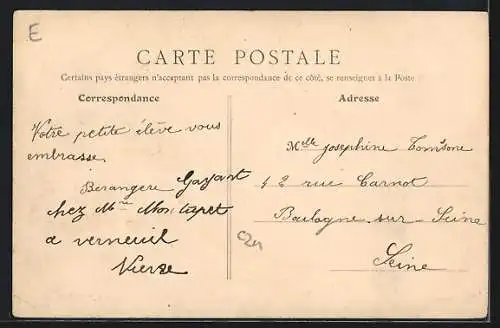 E
CARTE POSTALE
Certains pays étrangers n'acceptant pas la correspondance de ce côté, se renseigner à la Poste
Correspondance
Votre petite élève vous
embrasse
Berangere Gayant
chez Mme Montapet
a verneuil
Adresse
Melle Josephine
42 rue Carnot
Boulogne sur Seine
Seine